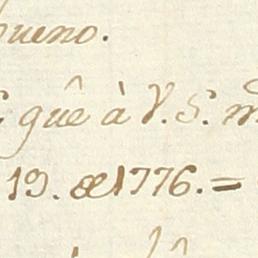 bueno.
guê à V. S. m
19. de 1776. =